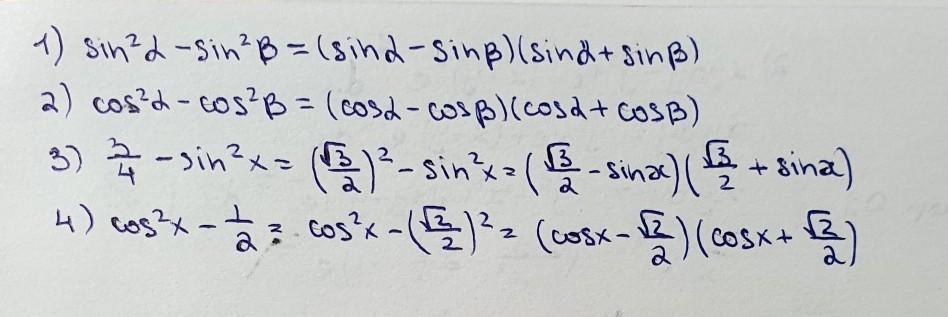 1) sin²α - sin²β = (sinα - sinβ)(sinα + sinβ)
2) cos²α - cos²β = (cosα - cosβ)(cosα + cosβ)
3) 3/4 - sin²x = (√3/2)² - sin²x = (√3/2 - sinx)(√3/2 + sinx)
4) cos²x - 1/2 = cos²x - (√2/2)² = (cosx - √2/2)(cosx + √2/2)